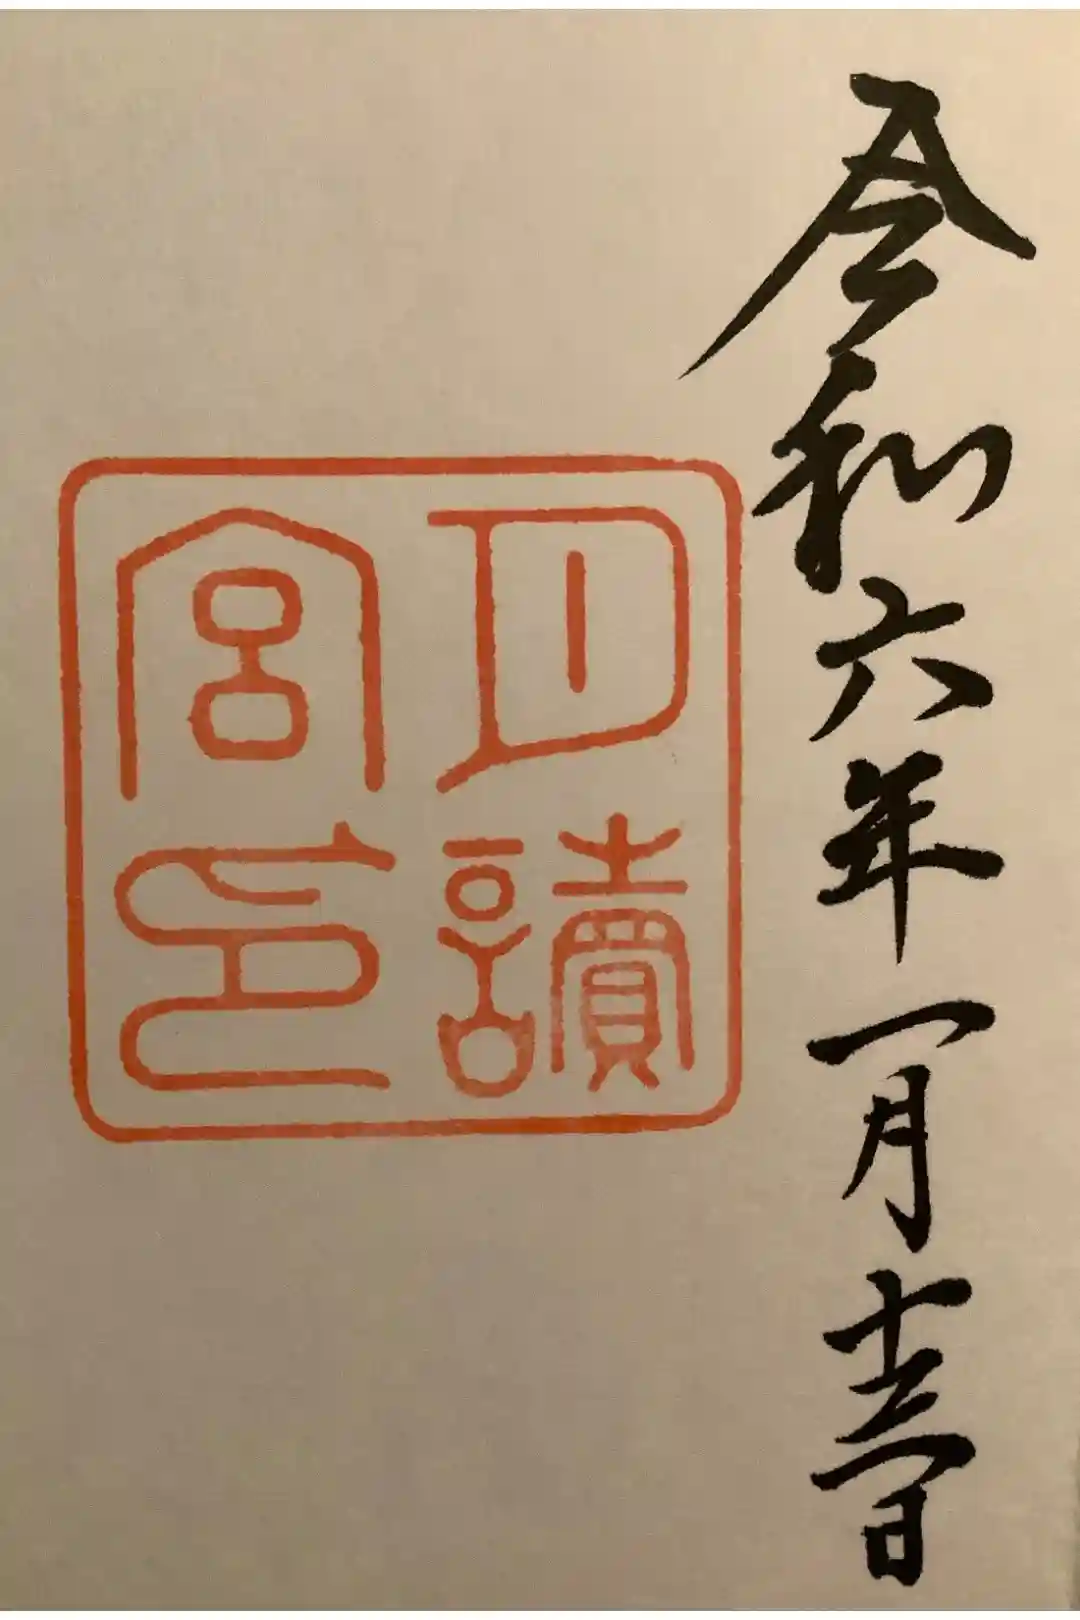 令和六年一月十三日
月讀
宮印